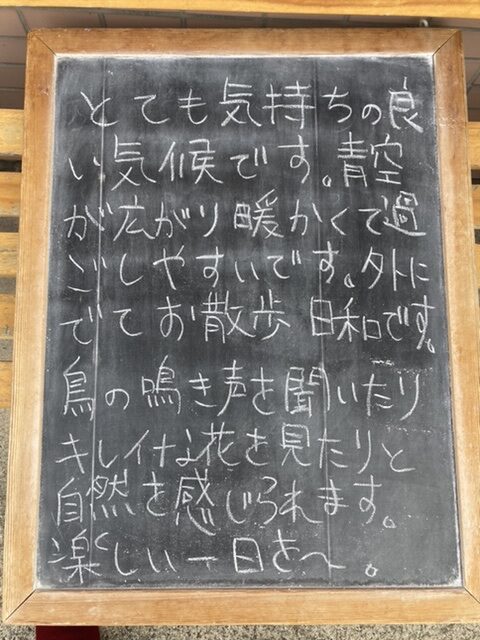 とても気持ちの良
い気候です。青空
が広がり暖かくて過
ごしやすいです。外に
でてお散歩日和です。
鳥の鳴き声を聞いたり
キレイな花を見たりと
自然を感じられます。
楽しい一日をへ。